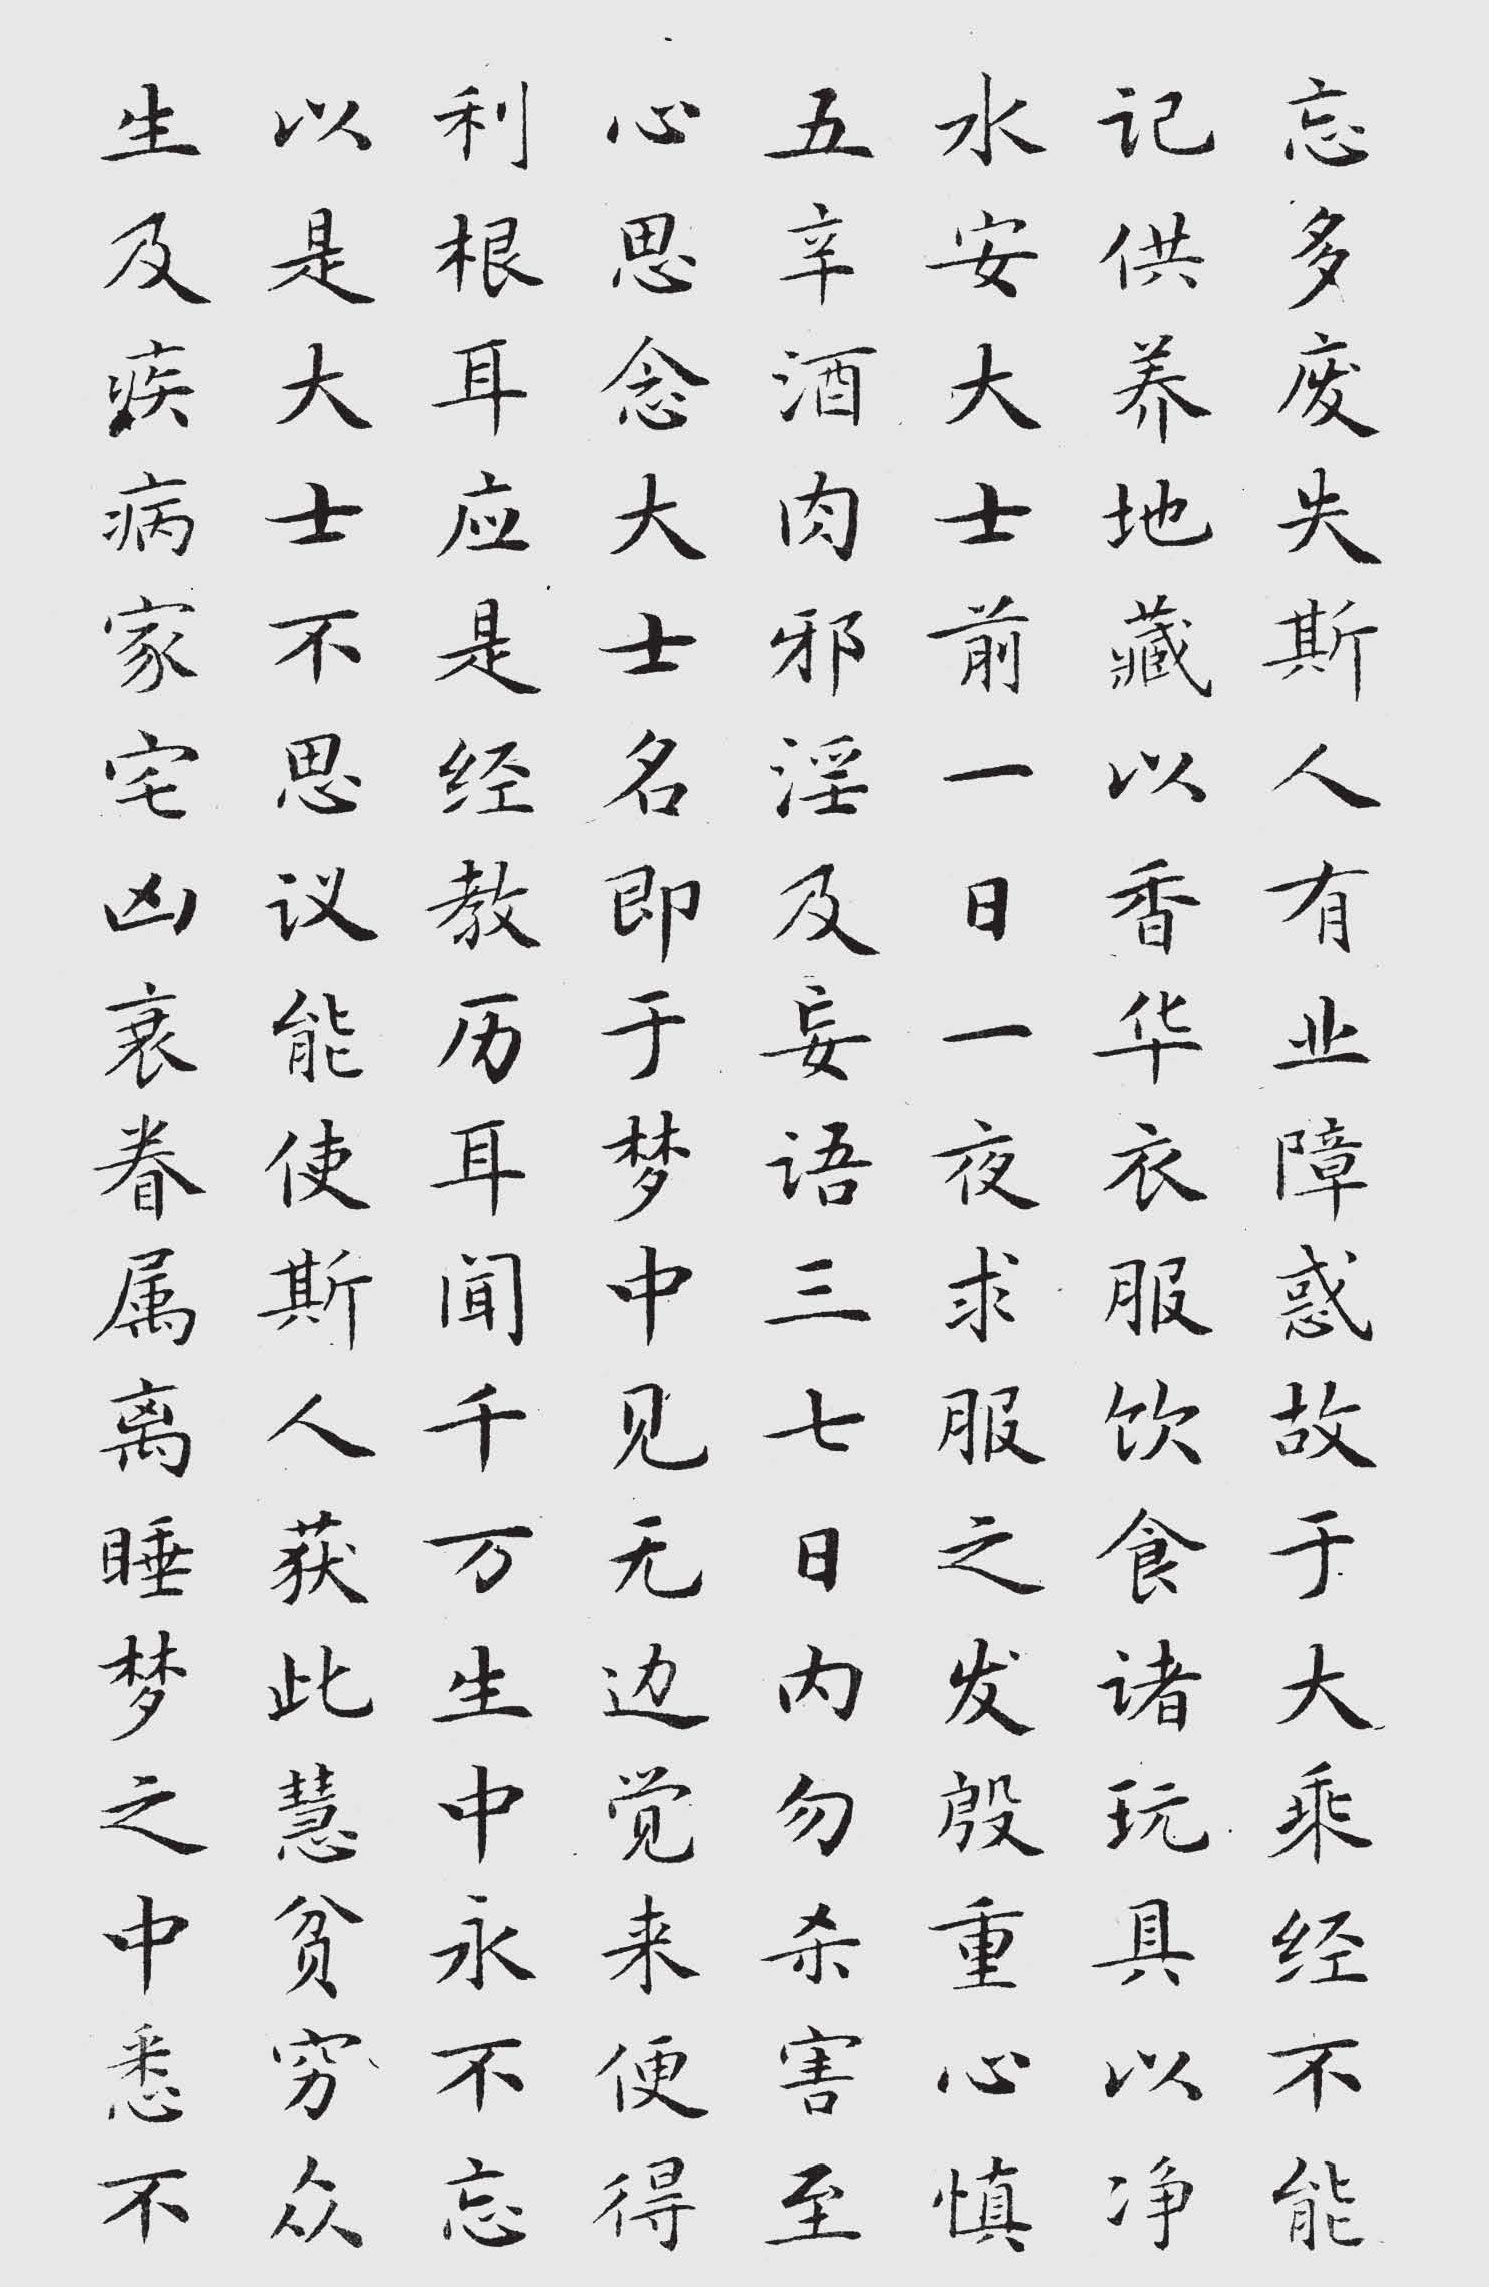 忘多废失斯人有业障惑故于大乘经不能
记供养地藏以香华衣服饮食诸玩具以净
水安大士前一日一夜求服之发殷重心慎
五辛酒肉邪淫及妄语三七日内勿杀害至
心思念大士名即于梦中见无边觉来便得
利根耳应是经教历耳闻千万生中永不忘
以是大士不思议能使斯人获此慧贫穷众
生及疾病家宅凶衰眷属离睡梦之中悉不